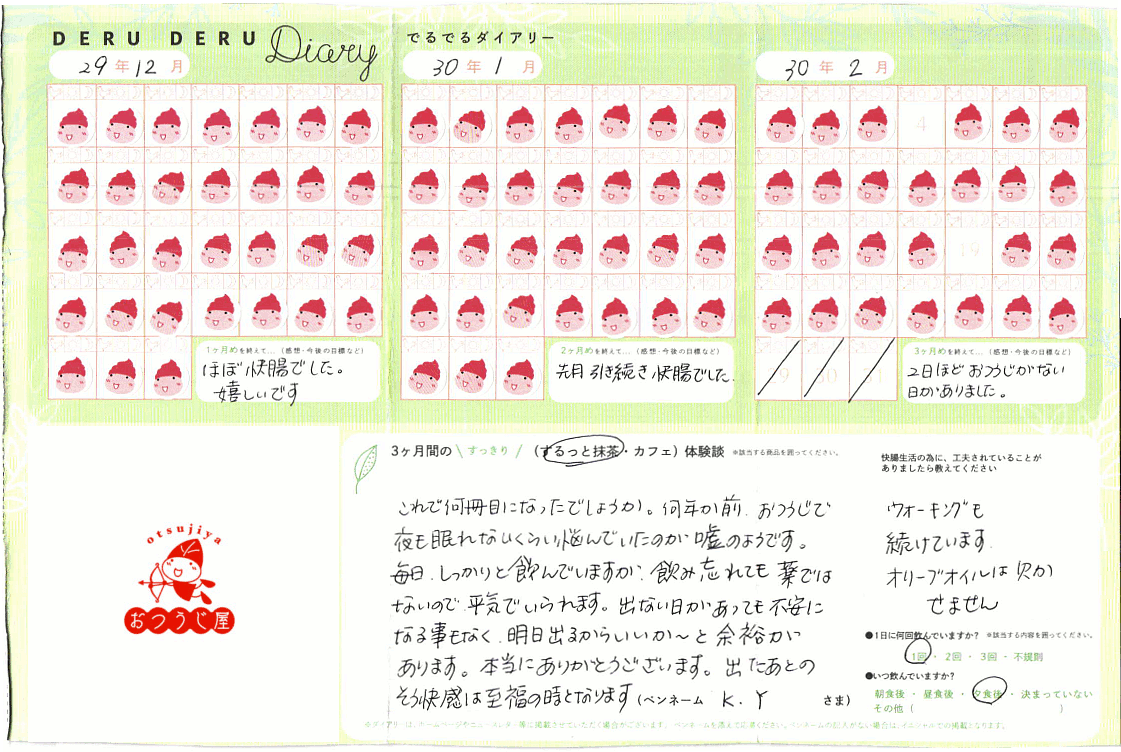 DERU DERU Diary でるでるダイアリー
29年12月
30年1月
30年2月
4
19
1ヶ月めを終えて…（感想・今後の目標など）
ほぼ快腸でした。
嬉しいです
2ヶ月めを終えて…（感想・今後の目標など）
先月引き続き快腸でした.
29 30 31
3ヶ月めを終えて…（感想・今後の目標など）
2日ほどおつうじがない
日がありました。
otsujiya
おつうじ屋
3ヶ月間の\すっきり/（するっと抹茶・カフェ）体験談 ※該当する商品を囲ってください。
これで何冊目になったでしょうか。何年か前、おつうじで
夜も眠れないくらい悩んでいたのが嘘のようです。
毎日、しっかりと飲んでいますが、飲み忘れても薬では
ないので、平気でいられます。出ない日があっても不安に
なる事もなく、明日出るからいいか〜と余裕が
あります。本当にありがとうございます。出たあとの
そう快感は至福の時となります（ペンネーム K.Y さま）
快腸生活の為に、工夫されていることが
ありましたら教えてください
ウォーキングも
続けています.
オリーブオイルは欠か
せません
●1日に何回飲んでいますか？ ※該当する内容を囲ってください。
1回・2回・3回・不規則
●いつ飲んでいますか？
朝食後・昼食後・夕食後・決まっていない
その他（ ）
※ダイアリーは、ホームページやニュースレター等に掲載させていただく場合がございます。ペンネームを添えてご応募ください。ペンネームの記入がない場合は、イニシャルでの掲載となります。